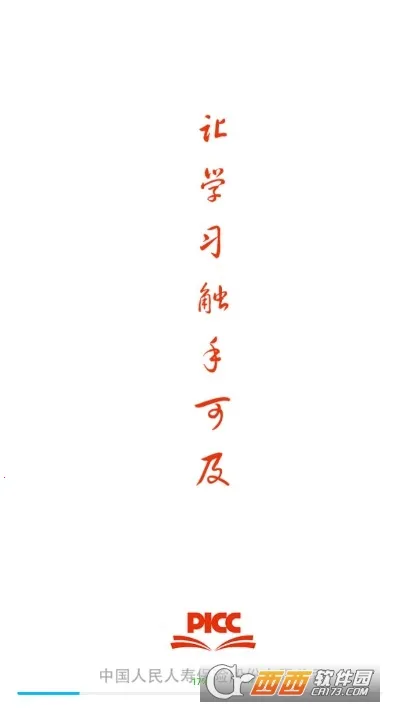 让学习触手可及
PICC
中国人民人寿保险股份
西西软件园
CR173.COM